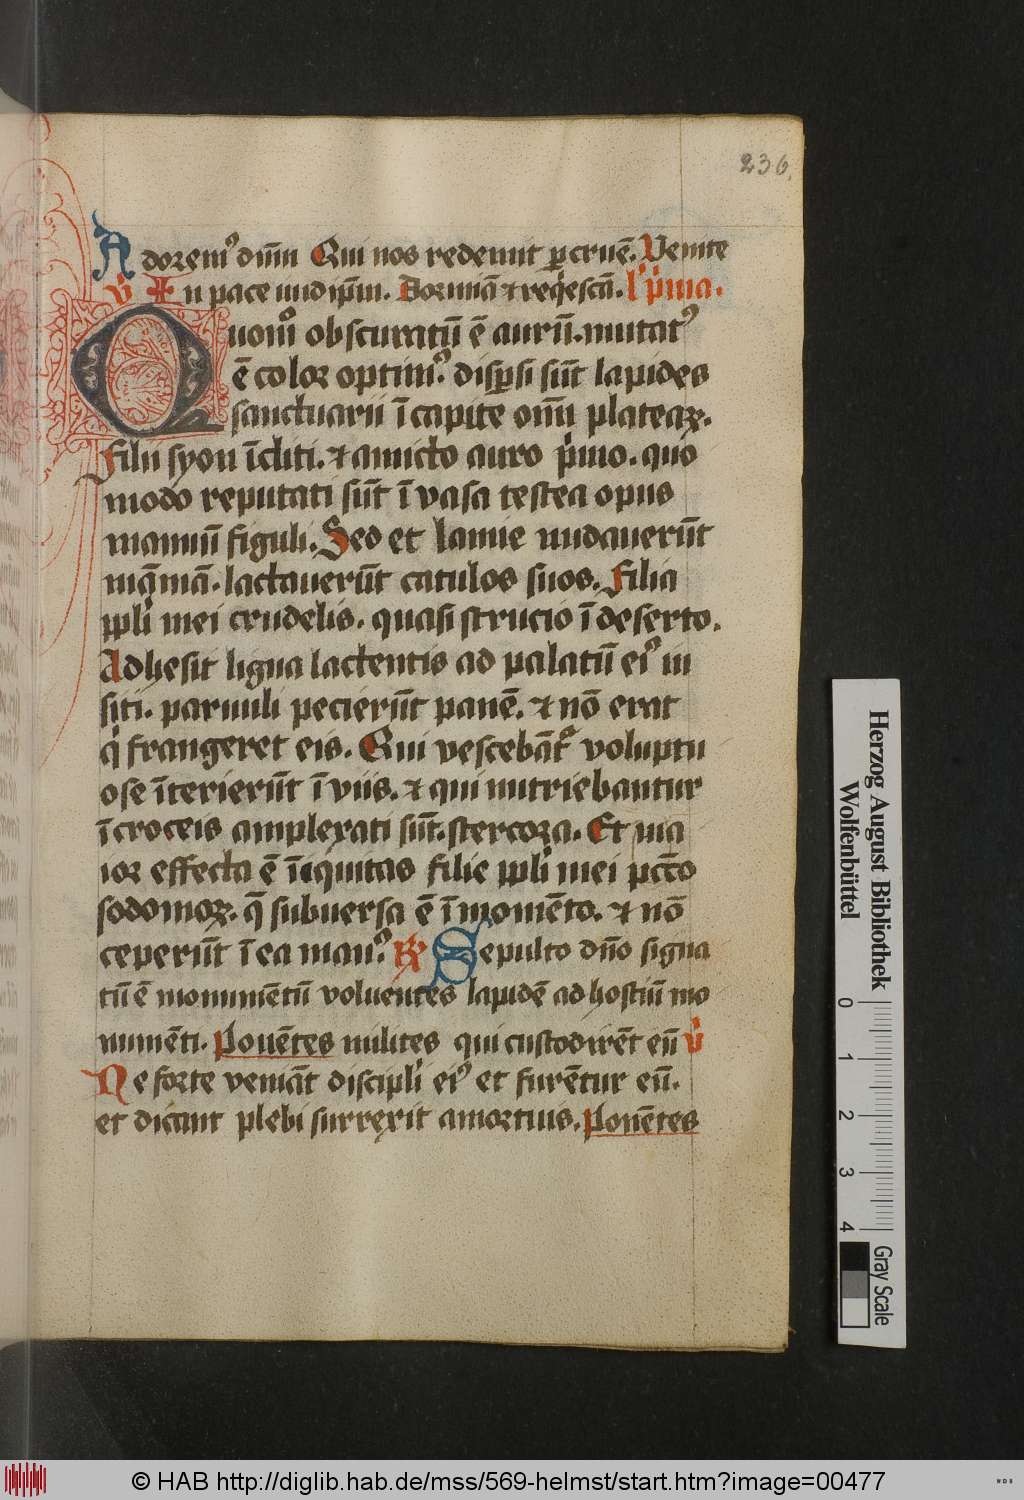 236
Adorem᷒ dnīu Qui nos redemit p̲ crucē. Venite
v̄ In pace in id ip̄m. Dormiā ⁊ req̇escā. l' p̓ma.
Quom̊ obscuratū ē aurū. mutat᷒
ē color optim᷒. disp̲si sūt lapides
sanctuarii ī capite om̄i plateaꝝ.
Filii syon īcliti. ⁊ amicto auro p̓mo. quo
modo reputati sūt ī vasa testea opus
manuū figuli. Sed et lamie nudauerūt
māmā. lactauerūt catulos suos. Filia
pp̄li mei crudelis. quasi strucio ī deserto.
Adhesit ligna lactentis ad palatū ei᷒ in
siti. paruuli pecierūt panē. ⁊ nō erat
q̓ frangeret eis. Qui vescebāt᷑ voluptu
ose īterierūt ī viis. ⁊ qui nutriebantur
ī croceis amplexati sūt. stercora. Et ma
ior effecta ē īiquitas filie pp̄li mei pcc̄o
sodomoꝝ. q̄ subuersa ē ī momēto. ⁊ nō
ceperūt ī ea man᷒. ℟ Sepulto dn̄o signa
tū ē monumētū voluentes lapidē ad hostiū mo
numēti. Ponētes milites qui custodirēt eū v̄
Ne forte veniāt discipl̄i ei᷒ et furētur eū.
et dicant plebi surrexit a mortuis. Ponētes
Herzog August Bibliothek
Wolfenbüttel
0 1 2 3 4
Gray Scale
© HAB http://diglib.hab.de/mss/569-helmst/start.htm?image=00477